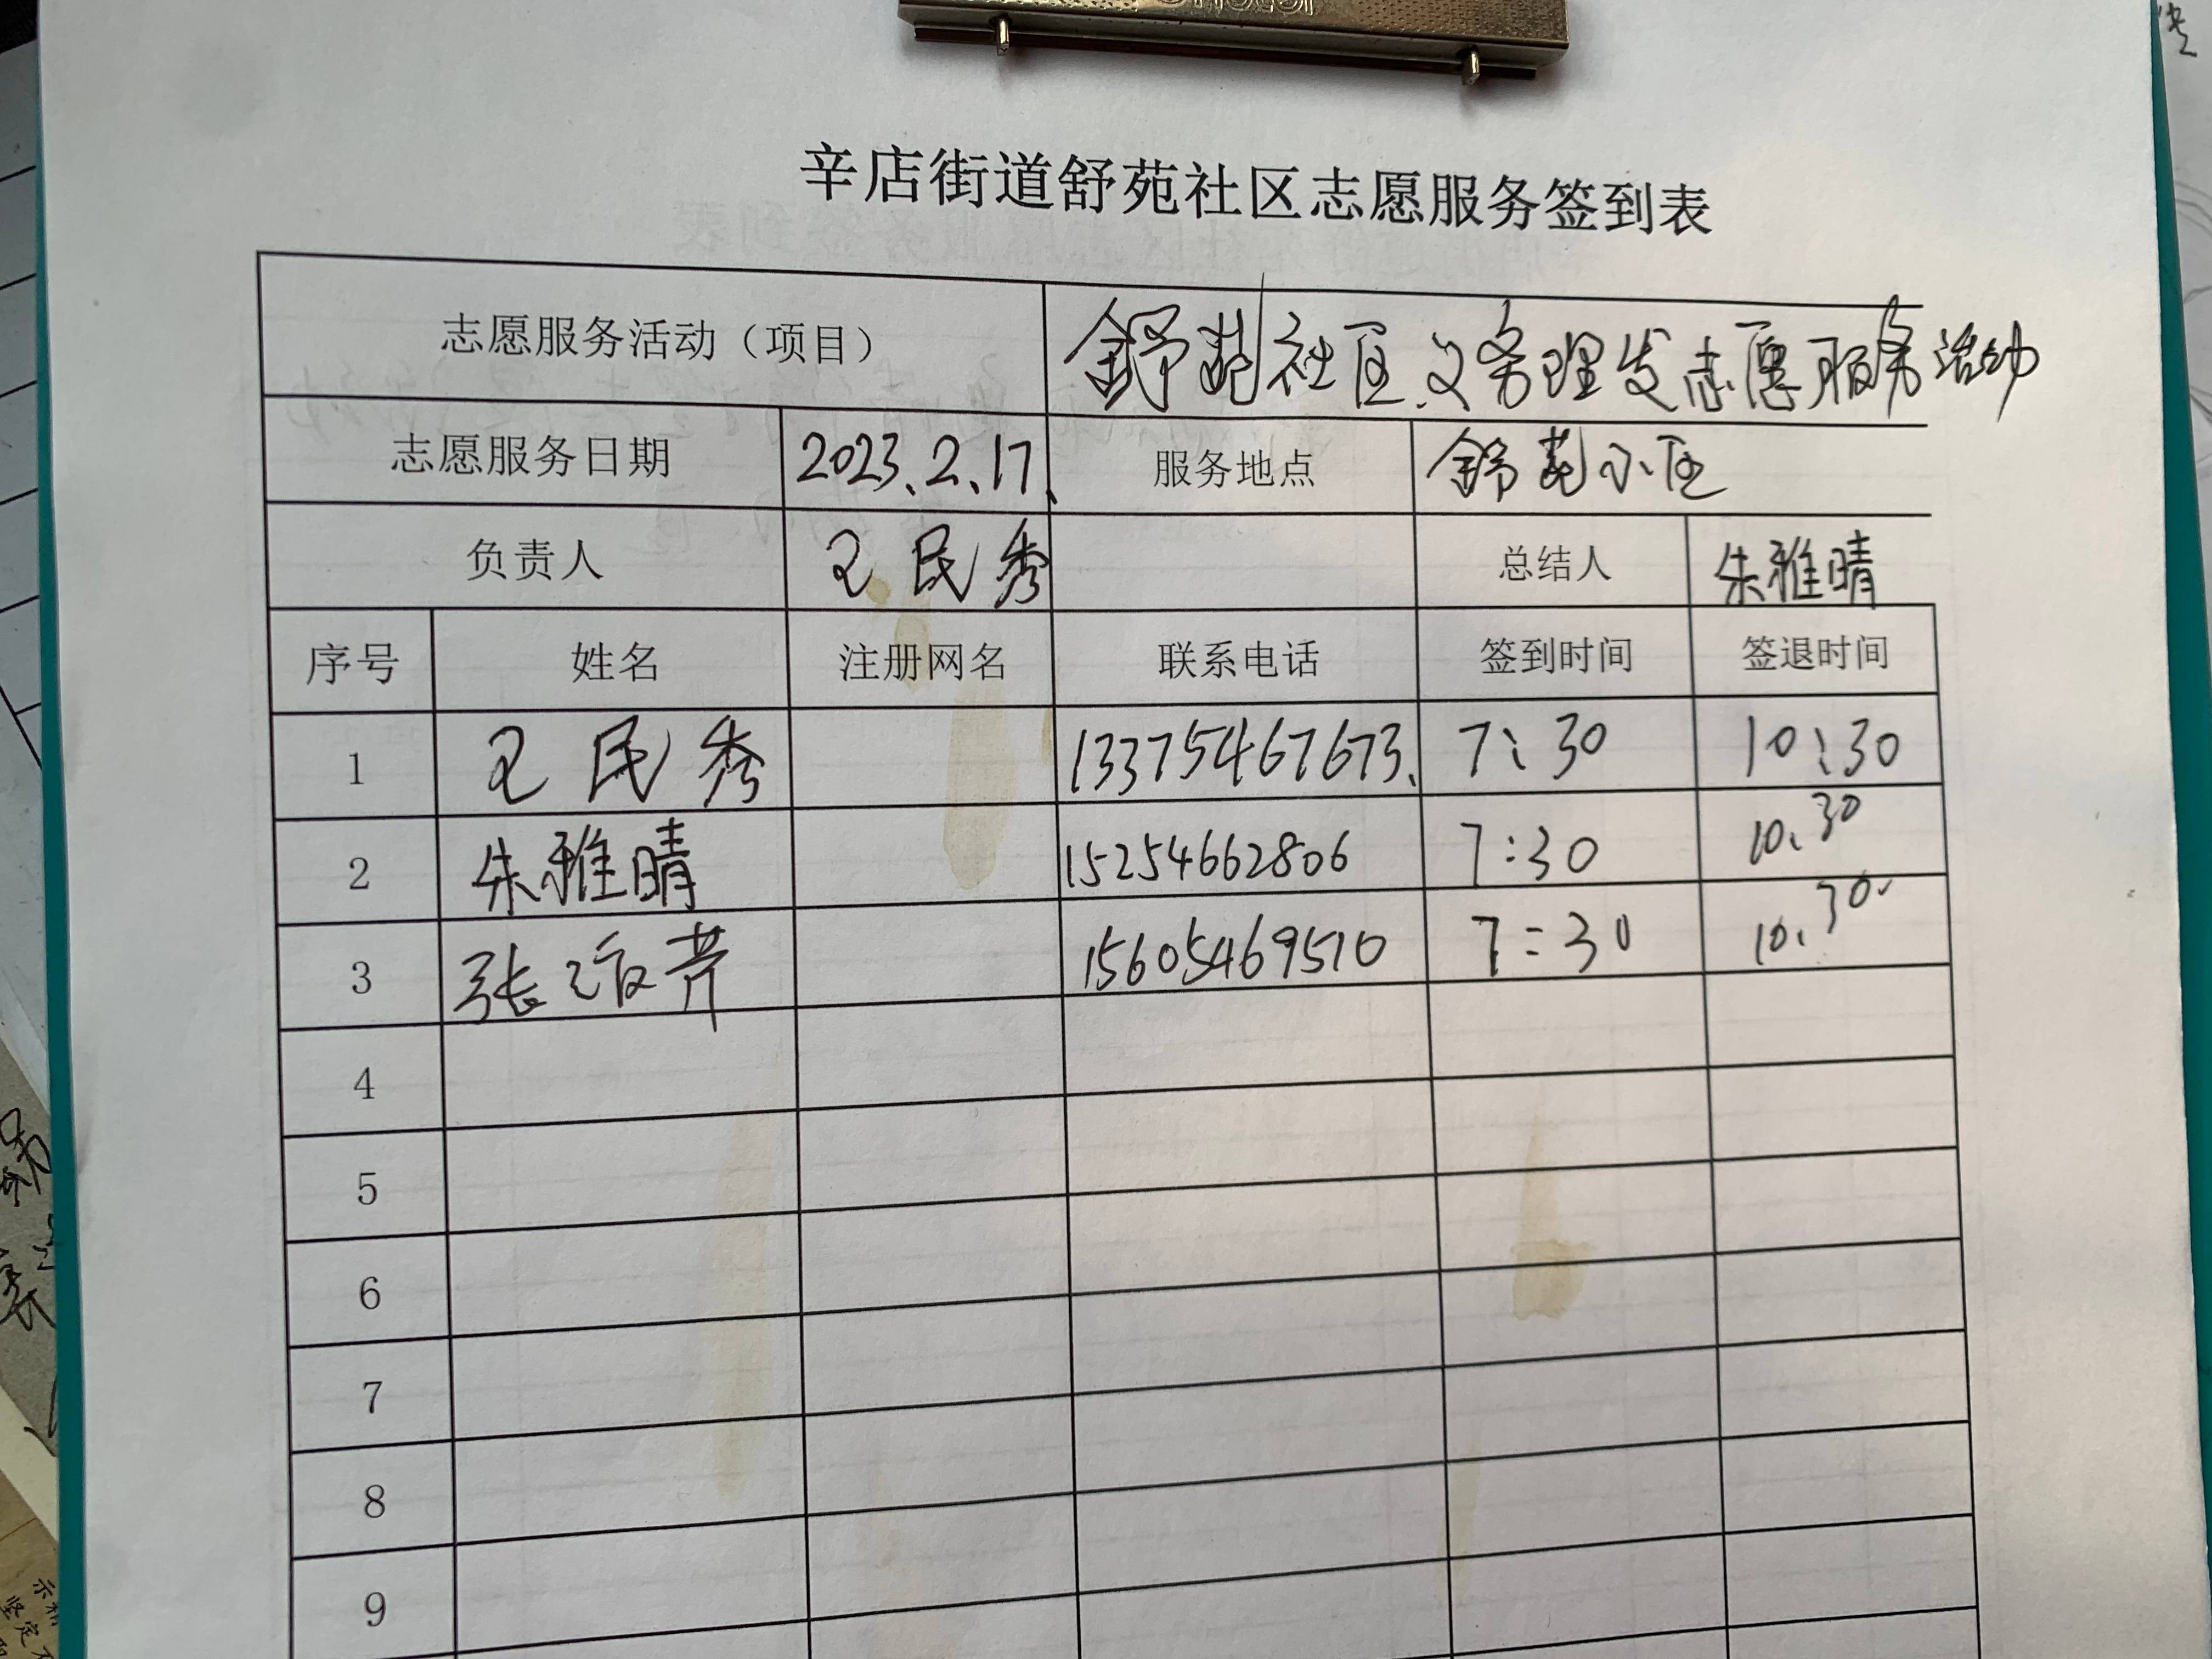 辛店街道舒苑社区志愿服务签到表
志愿服务活动（项目） 舒苑社区义务理发志愿服务活动
志愿服务日期 2023.2.17. 服务地点 舒苑小区
负责人 王民秀 总结人 朱雅晴
序号 姓名 注册网名 联系电话 签到时间 签退时间
1 王民秀 13375467673. 7:30 10:30
2 朱雅晴 15254662806 7:30 10.30
3 张 芹 15605469510 7:30 10.30.
4
5
6
7
8
9
坚定